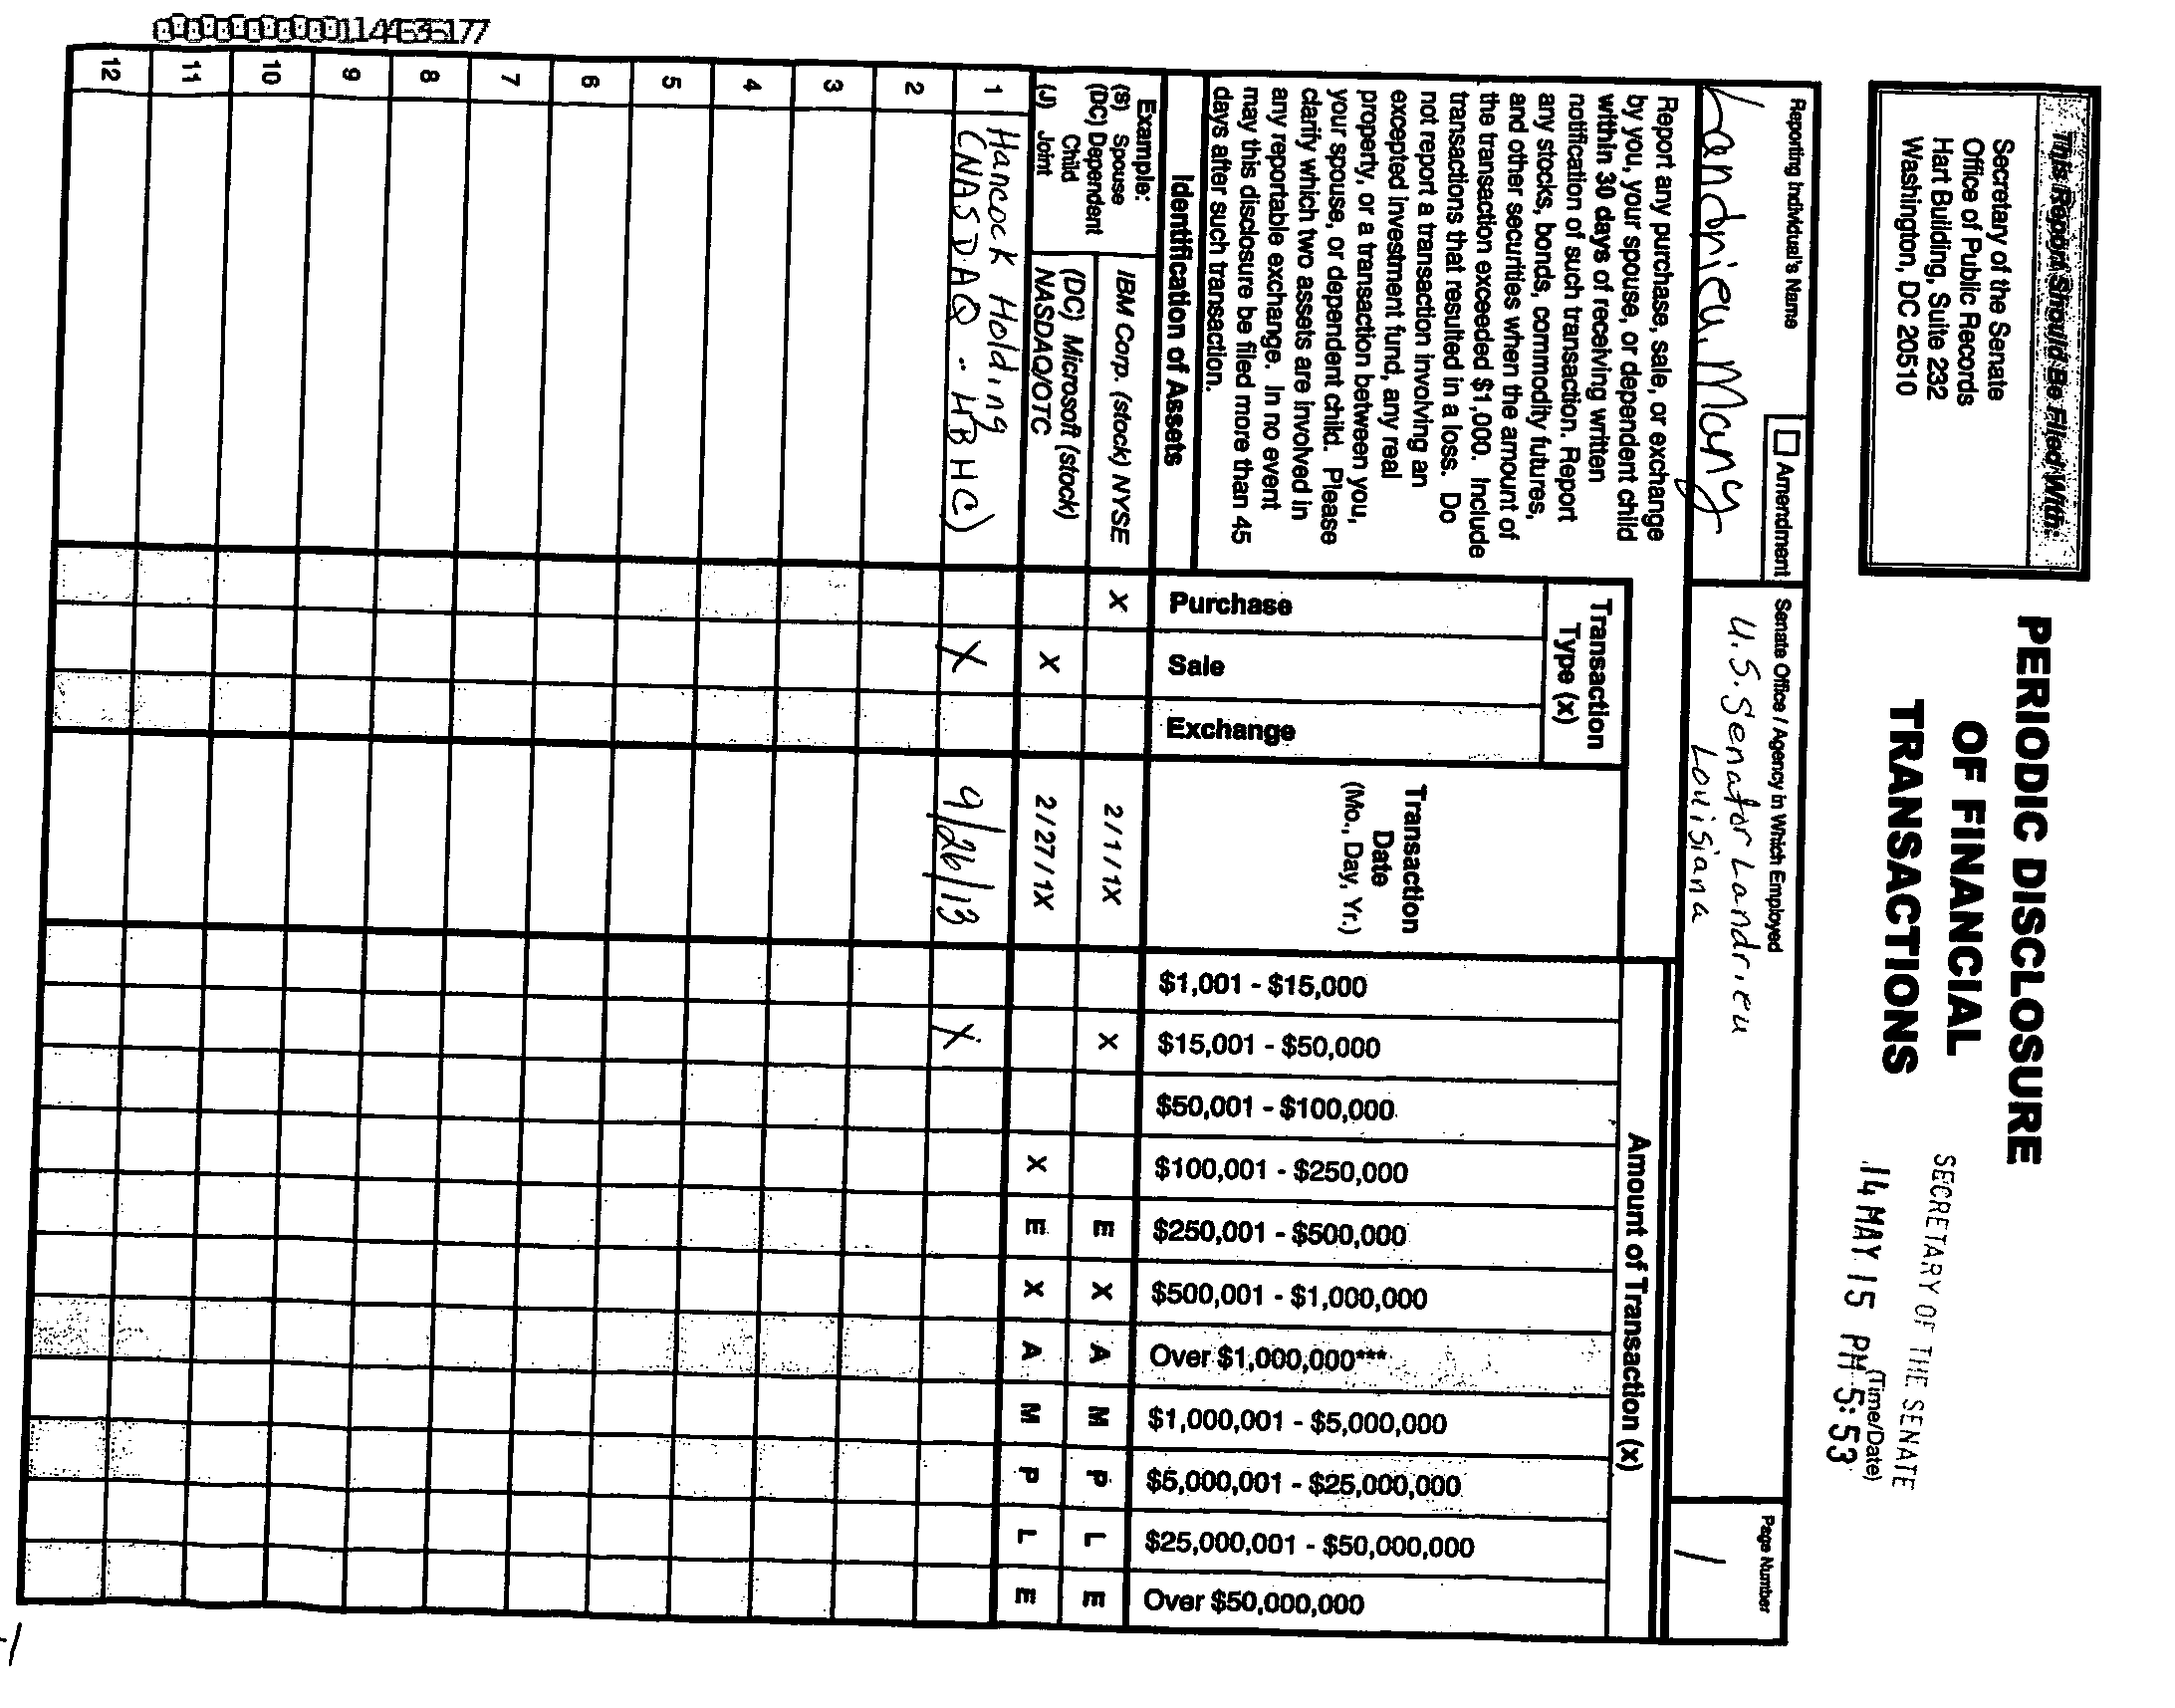 This Report Should Be Filed With:
Secretary of the Senate
Office of Public Records
Hart Building, Suite 232
Washington, DC 20510
PERIODIC DISCLOSURE
OF FINANCIAL
TRANSACTIONS
SECRETARY OF THE SENATE
(Time/Date)
14 MAY 15 PM 5:53
Reporting Individual's Name
Landrieu, Mary
Amendment
Senate Office / Agency in Which Employed
U.S. Senator Landrieu
Louisiana
Page Number
1
Report any purchase, sale, or exchange
by you, your spouse, or dependent child
within 30 days of receiving written
notification of such transaction. Report
any stocks, bonds, commodity futures,
and other securities when the amount of
the transaction exceeded $1,000. Include
transactions that resulted in a loss. Do
not report a transaction involving an
excepted investment fund, any real
property, or a transaction between you,
your spouse, or dependent child. Please
clarify which two assets are involved in
any reportable exchange. In no event
may this disclosure be filed more than 45
days after such transaction.
Identification of Assets
Transaction
Type (x)
Purchase
Sale
Exchange
Transaction
Date
(Mo., Day, Yr.)
Amount of Transaction (x)
$1,001 - $15,000
$15,001 - $50,000
$50,001 - $100,000
$100,001 - $250,000
$250,001 - $500,000
$500,001 - $1,000,000
Over $1,000,000***
$1,000,001 - $5,000,000
$5,000,001 - $25,000,000
$25,000,001 - $50,000,000
Over $50,000,000
Example:
(S) Spouse
(DC) Dependent
Child
(J) Joint
IBM Corp. (stock) NYSE X 2/1/1X X E X A M P L E
(DC) Microsoft (stock)
NASDAQ/OTC X 2/27/1X X E X A M P L E
1 Hancock Holding
(NASDAQ - HBHC) X 9/26/13 X
2
3
4
5
6
7
8
9
10
11
12